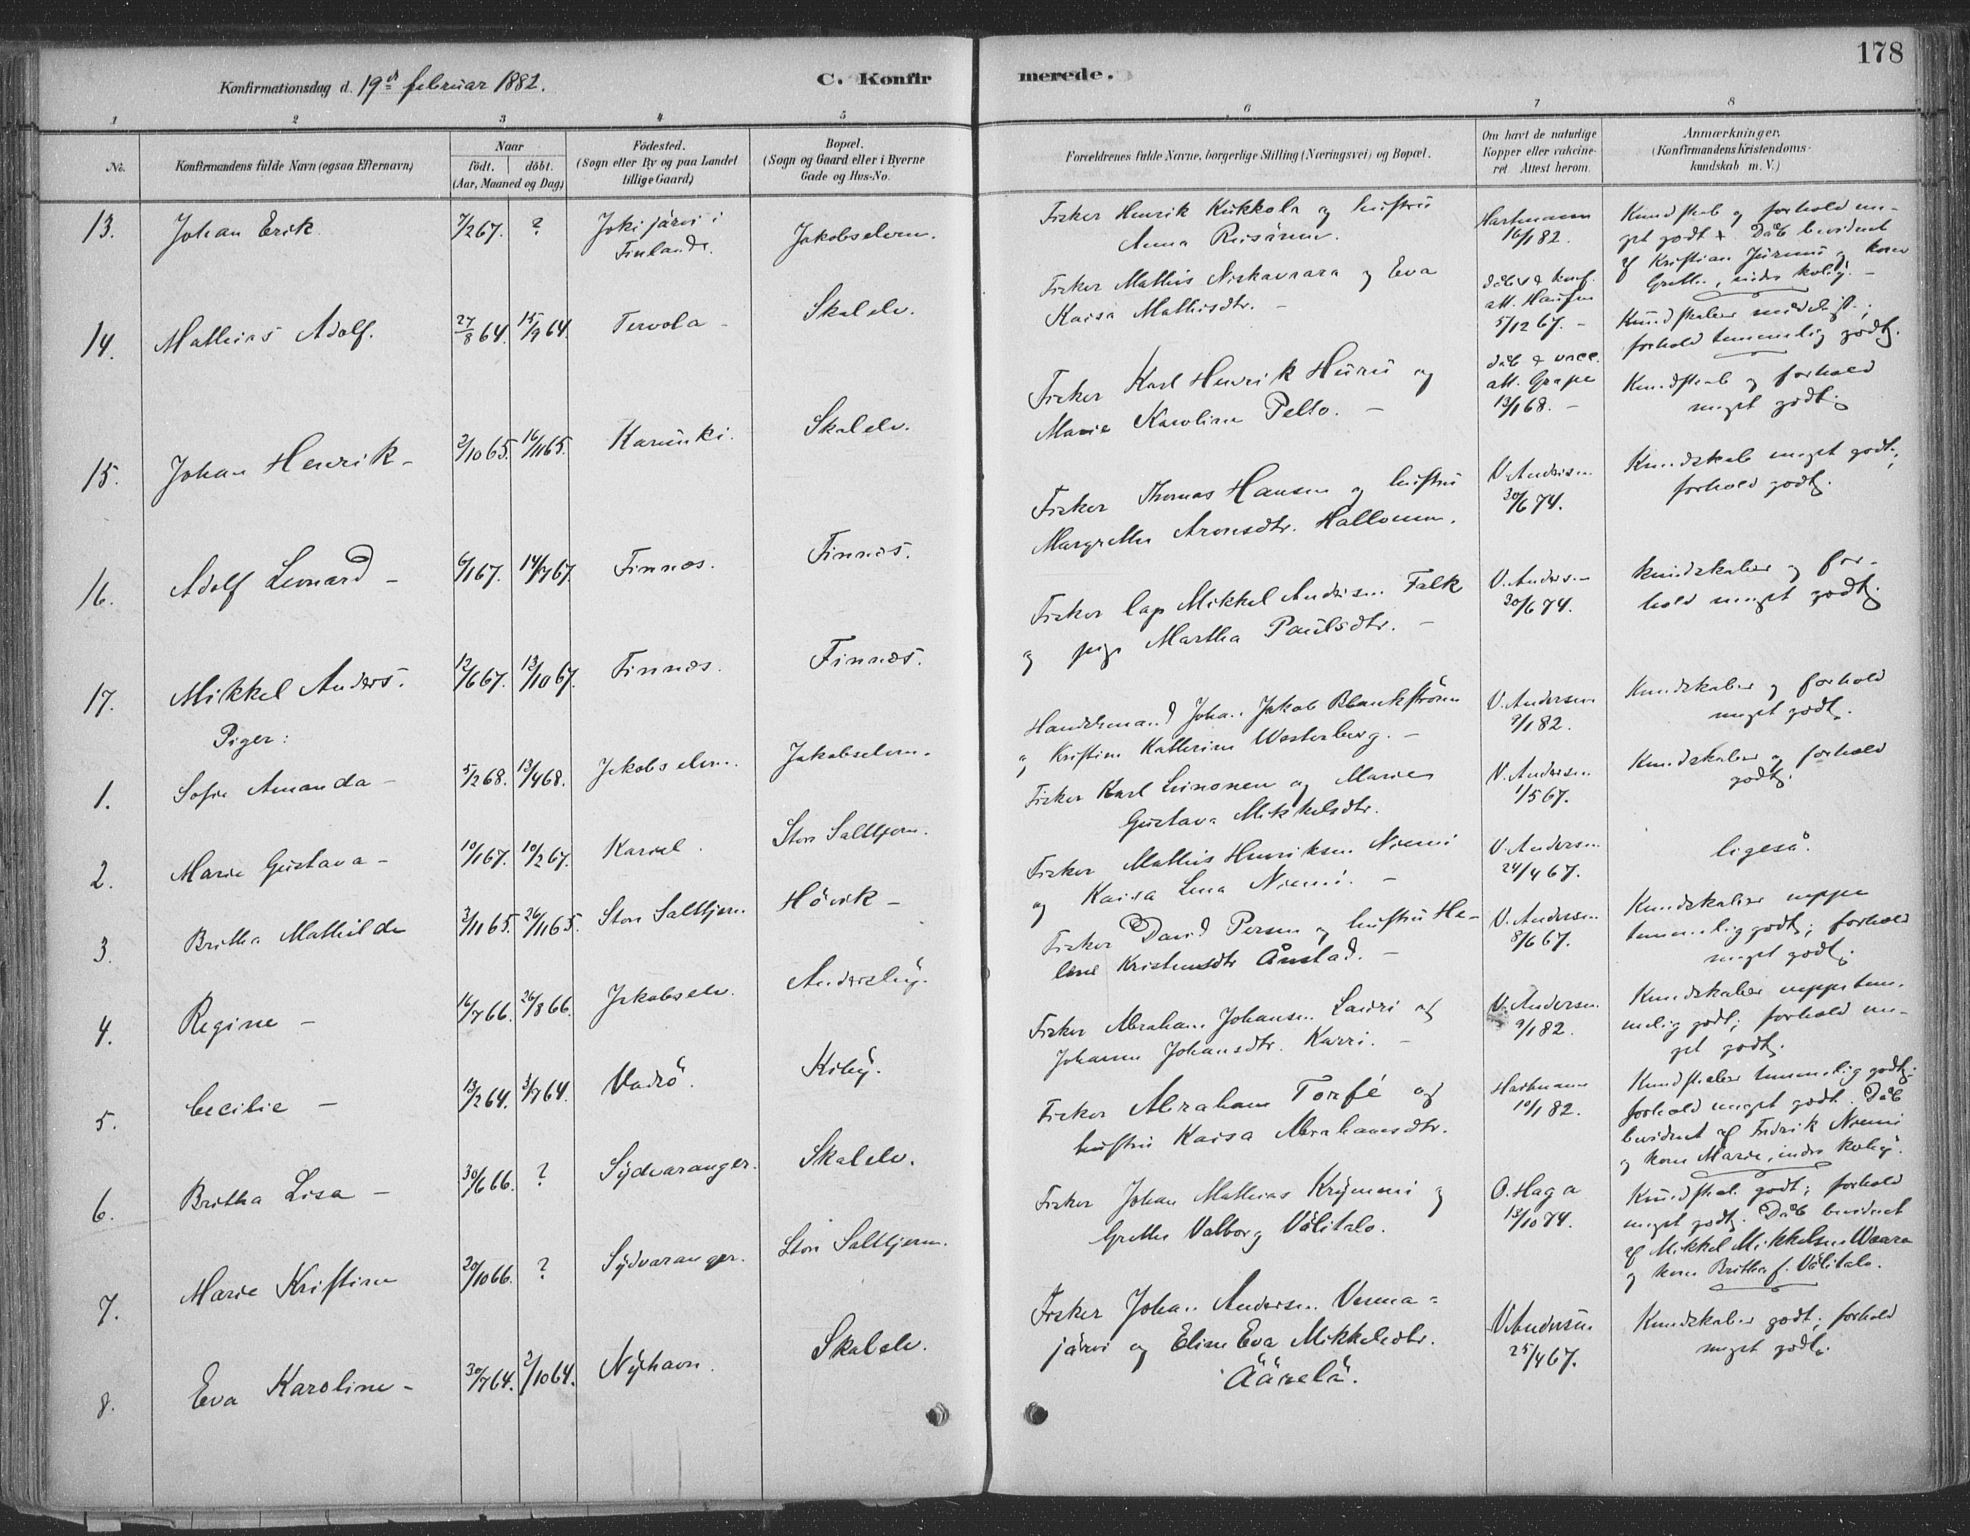 178
Konfirmationsdag d. 19de februar 1882.
C. Konfirmerede.
1 2 3 4 5 6 7 8
No.
Konfirmandens fulde Navn (ogsaa Efternavn)
Naar
födt. döbt.
(Aar, Maaned og Dag)
Födested.
(Sogn eller By og paa Landet
tillige Gaard)
Bopæl.
(Sogn og Gaard eller i Byerne
Gade og Hus-No.
Forældrenes fulde Navne, borgerlige Stilling (Næringsvei) og Bopæl.
Om havt de naturlige
Kopper eller vakcine-
ret Attest herom.
Anmærkninger.
(Konfirmandens Kristendoms-
kundskab m. V.)
13. Johan Erik 7/2 67. ? Jokijärvi i
Finland. Jakobselven.
Fisker Henrik Kukkola og hustru
Anna
Hartmann
16/1 82.
Kundskab og forhold me-
get godt. Dåb bevidnet
af Kristian og kone
Grethe,
14. Mathias Adolf. 27/8 64. 15/9 64. Tervola - Skalelv.
Fisker Mathis Niskavaara og Eva
Kaisa Mathisdtr. -
dåbs & konf.
att. Hansen
5/12 67. -
Kundskaber ;
forhold temmelig godt.
15. Johan Henrik - 2/10 65. 16/11 65. Karunki. Skalelv.
Fisker Karl Henrik Huru og
Marie Karoline Pello. -
dåb & vacc.
att. Grape
13/1 68. -
Kundskab og forhold
meget godt.
16. Adolf Leonard - 6/1 67. 14/7 67. Finnæs. Finnæs.
Fisker Thomas Hansen og hustru
Margrethe Aronsdtr.
V. Andersen
30/6 74.
Kundskab meget godt;
forhold godt.
17. Mikkel Anders. 12/6 67. 13/10 67. Finnæs. Finnæs.
Fisker lap Mikkel Andersen Falk
og pige Martha Paulsdtr. -
V. Andersen
30/6 74.
Kundskaber og for-
hold meget godt.
Piger:
1. Sofie Amanda - 5/2 68. 13/4 68. Jakobselven. Jakobselven.
Handelsmand Johan Jakob Blankström
og Kristine Katherine Westerberg. -
V. Andersen
9/1 82.
Kundskaber og forhold
meget godt.
2. Marie Gustava - 10/1 67. 10/2 67. Kariel. Store Saltjern.
Fisker Karl Leinonen og Marie
Gustava Mikkelsdtr.
V. Andersen
1/5 67.
Kundskaber og forhold
godt.
3. Britha Mathilde 3/11 65. 26/11 65. Store Saltjern. Høvik -
Fisker Mathis Henriksen Niemi
og Kaisa Lena Niemi. -
V. Andersen
24/4 67.
ligeså.
4. Regine - 16/7 66. 26/8 66. Jakobselv. Andersby.
Fisker David Persen og hustru He-
lene Kristensdtr Ånstad. -
V. Andersen
8/6 67.
Kundskaber neppe
temmelig godt; forhold
meget godt.
5. Cecilie - 13/2 64. 3/7 64. Vadsö. Kiby.
Fisker Abraham Johansen Lauri og
Johanne Johansdtr. Karri. -
V. Andersen
9/1 82.
Kundskaber neppe tem-
melig godt; forhold me-
get godt.
6. Britha Lisa - 30/6 66. ? Sydvaranger. Skalelv.
Fisker Abraham Torfé og
hustru Kaisa Abrahamsdtr.
Hartmann
10/1 82.
Kundskaber temmelig godt;
forhold meget godt. Dåb
bevidnet af Fredrik Niemi
og kone Marie,
7. Marie Kristine 20/10 66. ? Sydvaranger. Store Saltjern.
Fisker Johan Mathias Krymmi og
Grethe Valborg Välitalo.
O. Haga
13/10 74.
Kundskab godt; forhold
meget godt. Dåb bevidnet
af Mikkel Mikkelsen Waara
og kone Britha f. Välitalo.
8. Eva Karoline - 30/7 64. 2/10 64. Nyhavn. Skalelv.
Fisker Johan Andersen Venna-
järvi og Eline Eva Mikkelsdtr.
Äärelä.
V. Andersen
25/4 67.
Kundskaber godt; forhold
meget godt.